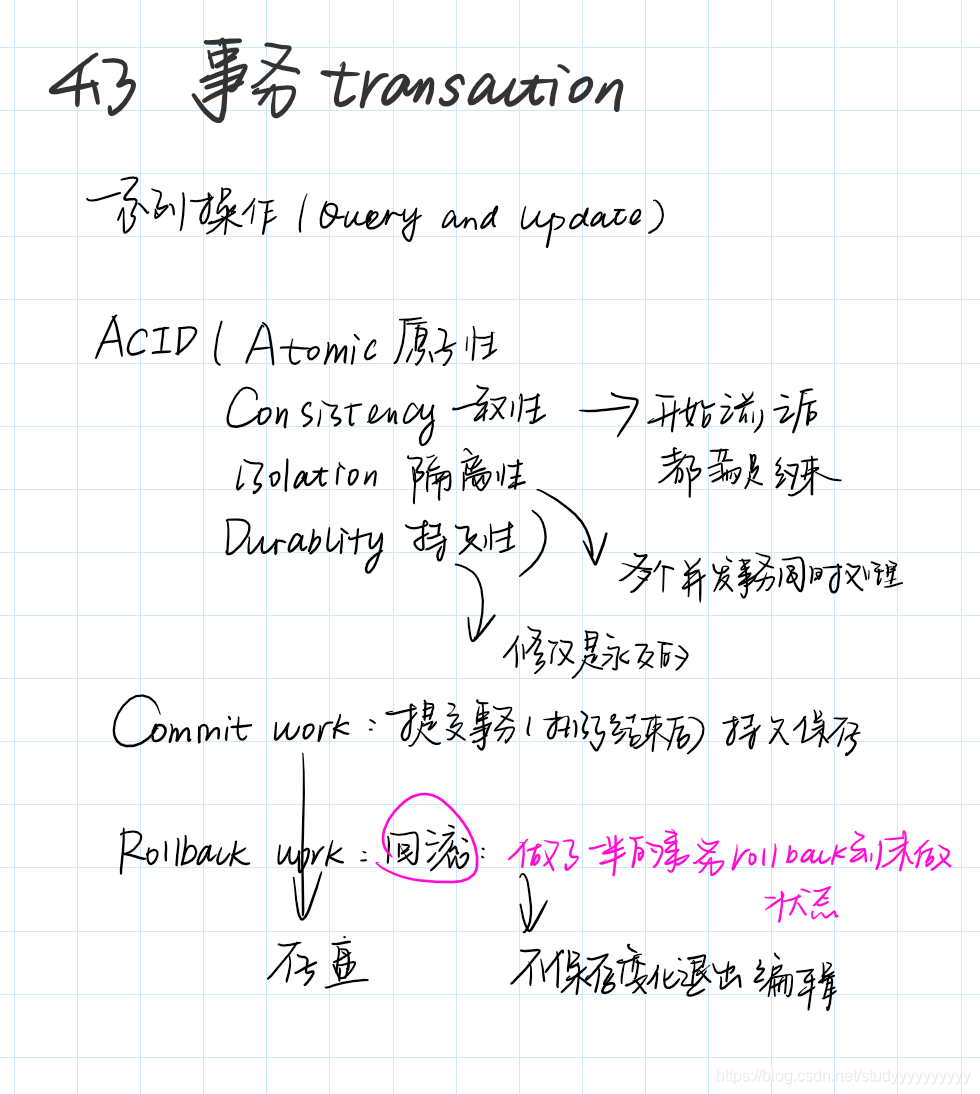 4.3 事务 transaction
一系列操作（Query and update）
ACID（Atomic 原子性
Consistency 一致性 → 开始之前，之后
都满足约束
isolation 隔离性
Durablity 持久性）
多个并发事务同时处理
修改是永久的
Commit work：提交事务（执行结束后）持久保存
Rollback work：回滚：做了一半的事务rollback到未做
状态
存盘
不保存变化退出编辑
https://blog.csdn.net/studyyyyyyyyyy